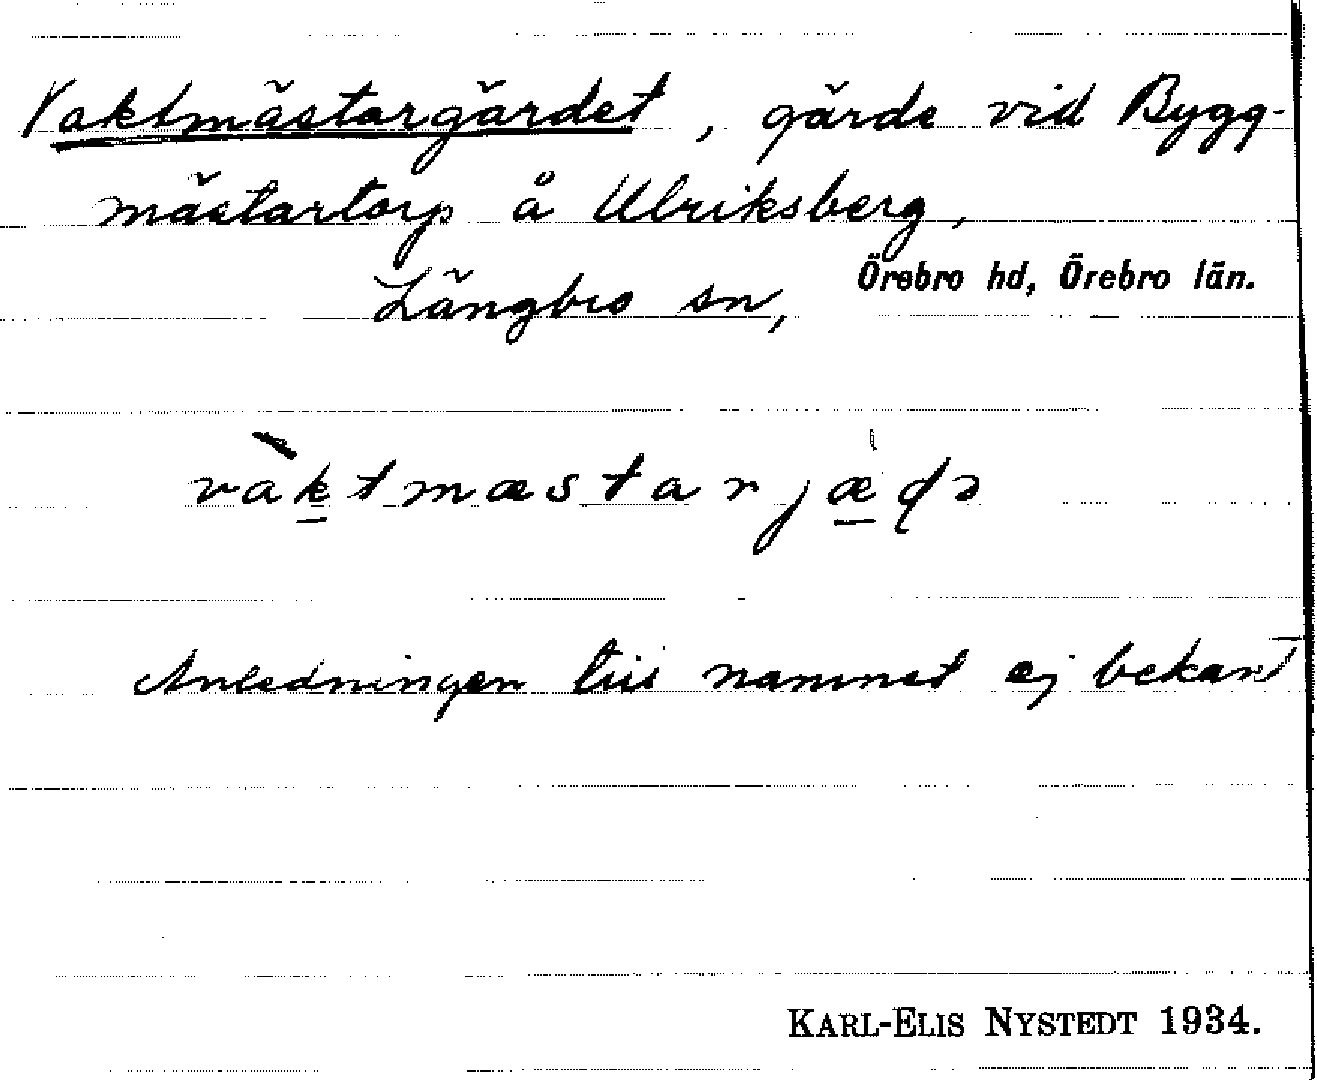 Vaktmästargärdet, gärde vid Bygg-
mästartorp å Ulriksberg,
Längbro sn, Örebro hd, Örebro län.
vàktmæstarjæ̀ɖə
Anledningen till namnet ej bekant
KARL-ELIS NYSTEDT 1934.